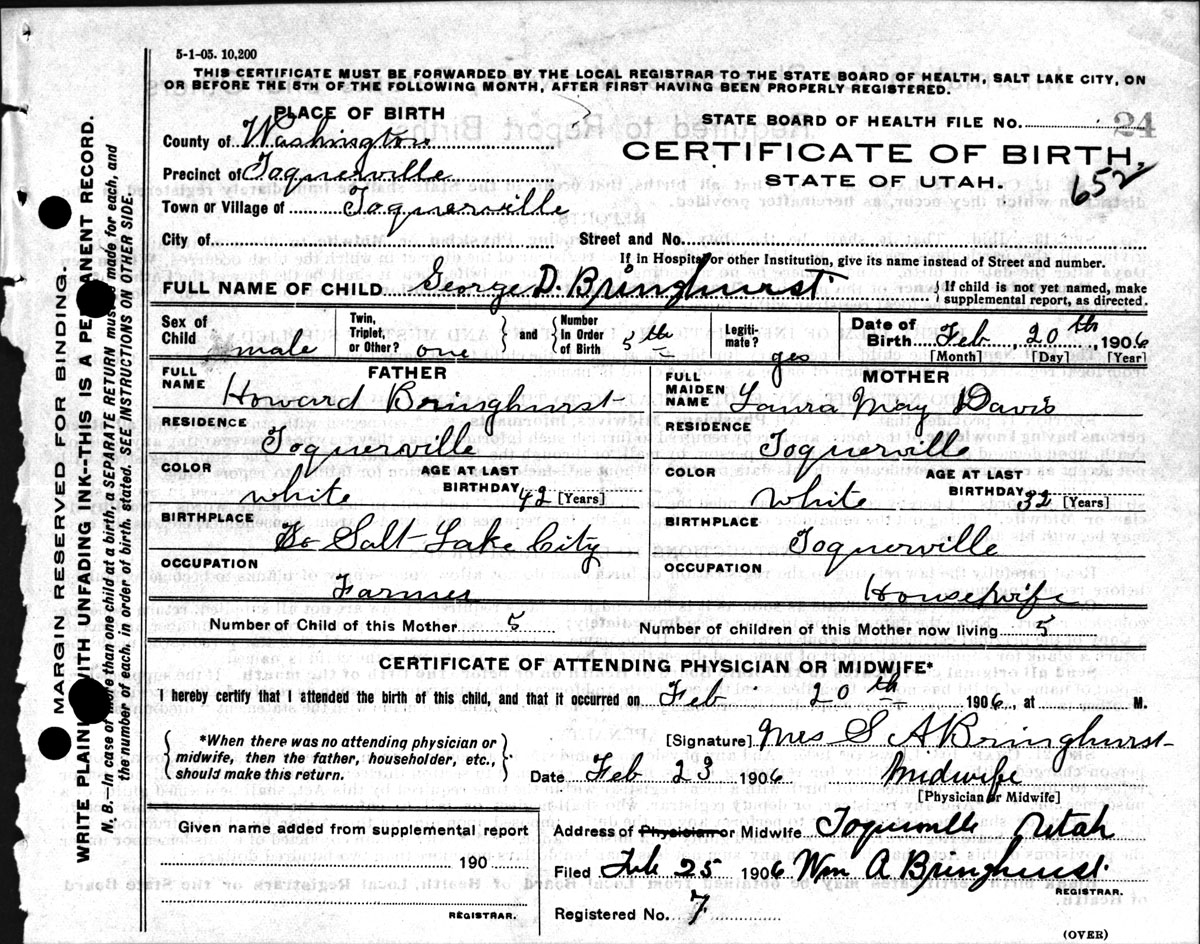 5-1-05. 10,200
THIS CERTIFICATE MUST BE FORWARDED BY THE LOCAL REGISTRAR TO THE STATE BOARD OF HEALTH, SALT LAKE CITY, ON
OR BEFORE THE 5TH OF THE FOLLOWING MONTH, AFTER FIRST HAVING BEEN PROPERLY REGISTERED.
PLACE OF BIRTH
STATE BOARD OF HEALTH FILE NO. 24
County of Washington
CERTIFICATE OF BIRTH,
Precinct of Toquerville
STATE OF UTAH.
652
Town or Village of Toquerville
City of Street and No.
If in Hospital or other Institution, give its name instead of Street and number.
FULL NAME OF CHILD George D. Bringhurst { If child is not yet named, make supplemental report, as directed.
Sex of Child male Twin, Triplet, or Other? one } and { Number In Order of Birth 5th Legiti-mate? yes Date of Birth Feb, 20th, 1906
[Month] [Day] [Year]
FATHER
FULL NAME Howard Bringhurst
RESIDENCE
Toquerville
COLOR white AGE AT LAST BIRTHDAY 42 [Years]
BIRTHPLACE
Salt Lake City
OCCUPATION
Farmer
MOTHER
FULL MAIDEN NAME Laura May Davis
RESIDENCE
Toquerville
COLOR White AGE AT LAST BIRTHDAY 32 [Years]
BIRTHPLACE
Toquerville
OCCUPATION
Housewife
Number of Child of this Mother 5 Number of children of this Mother now living 5
CERTIFICATE OF ATTENDING PHYSICIAN OR MIDWIFE*
I hereby certify that I attended the birth of this child, and that it occurred on Feb 20th 1906, at M.
{ *When there was no attending physician or
midwife, then the father, householder, etc.,
should make this return. }
[Signature] Mrs S A Bringhurst
Date Feb 23 1906. Midwife
[Physician or Midwife]
Given name added from supplemental report
190
REGISTRAR.
Address of Physician or Midwife Toquerville Utah
Filed Feb 25 1906 Wm A Bringhurst
REGISTRAR.
Registered No. 7
(OVER)
MARGIN RESERVED FOR BINDING.
WRITE PLAINLY WITH UNFADING INK--THIS IS A PERMANENT RECORD.
N. B.--In case of more than one child at a birth, a SEPARATE RETURN must be made for each, and
the number of each, in order of birth, stated. SEE INSTRUCTIONS ON OTHER SIDE.